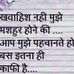 ख्वाहिश नही मुझे
मशहूर होने की ....
आप मुझे पहचानते हो
बस इतना ही
काफी है....